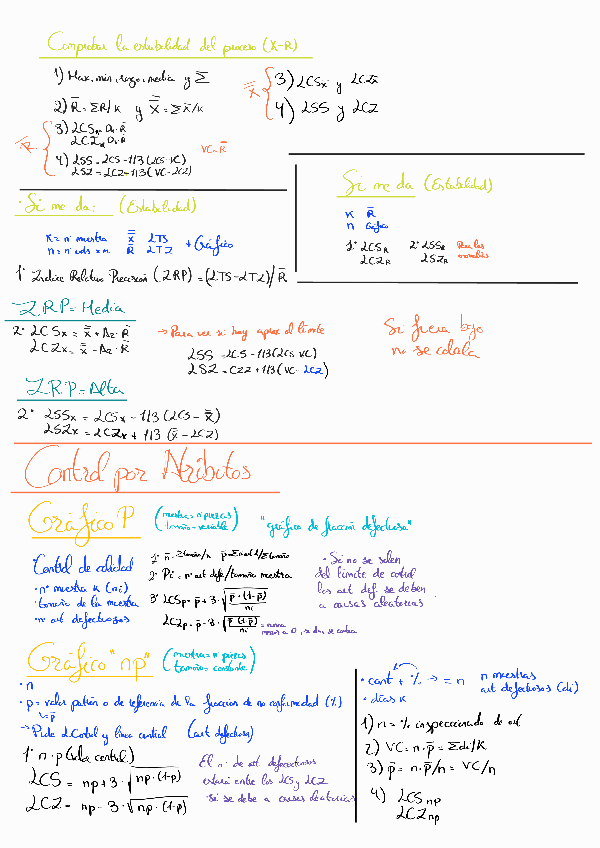 Comprobar la estabilidad del proceso (X-R)
1) Max, min, rango, media y Σ
2) R̄ = ΣR/K y X̿ = ΣX̄/K
R̄ 3) LCS_R D₄·R̄
LCI_R D₃·R̄
4) LSS = LCS - 1/3 (LCS-VC)
LSI = LCI + 1/3 (VC - LCI)
VC = R̄
X̿ 3) LCSx̄ y LCIx̄
4) LSS y LCI
· Si me da: (Estabilidad)
K = nº muestra X̿ LTS
n = nº uds x m. R̄ LTI + Gráfico
1º Indice Relativo Precisión (IRP) = (LTS-LTI)/R̄
Si me da (Estabilidad)
K R̄
n Gráfico
1º LCS_R 2º LSS_R Para las
LCI_R LSI_R
I.R.P = Media
2º LCSx = X̿ + A₂·R̄
LCIx = X̿ - A₂·R̄
→ Para ver si hay aprox al límite
LSS = LCS - 1/3 (LCS-VC)
LSI = LCI + 1/3 (VC - LCI)
Si fuera bajo
no se calcula
I.R.P = Alta
2º LSSx = LCSx - 1/3 (LCS - X̿)
LSIx = LCIx + 1/3 (X̿ - LCI)
Control por Atributos
Gráfico P (muestra = n piezas
tamaño = variable) "gráfico de fracción defectuosa"
Control de calidad
· nº muestra K (ni)
· tamaño de la muestra
· nº art defectuosos
1º n̄ = Σtamaño/K p̄ = Σnº def/Σtamaño
2º Pi = nº art defe/tamaño muestra
3º LCSp = p̄ + 3·√(p̄·(1-p̄)/ni)
LCIp = p̄ - 3·√(p̄·(1-p̄)/ni) = nunca
menor a 0, si da, se pone
· Si no se salen
del límite de control
los art. def. se deben
a causas aleatorias
Gráfico "np" (muestra = n piezas
tamaño = constante)
· n
· p = valor patrón o de referencia de la fracción de no conformidad (%)
↳ p̄
→ Pide LControl y línea central (art defectuoso)
1º n·p (línea central)
LCS = np + 3·√(np·(1-p))
LCI = np - 3·√(np·(1-p))
El nº de art defectuosos
estará entre los LCS y LCI
si se debe a causas aleatorias
· cant + % → = n n muestras
art defectuosos (di)
· días K
1) n = % inspeccionado de art
2) VC = n·p̄ = Σdi/K
3) p̄ = n·p̄/n = VC/n
4) LCS np
LCI np